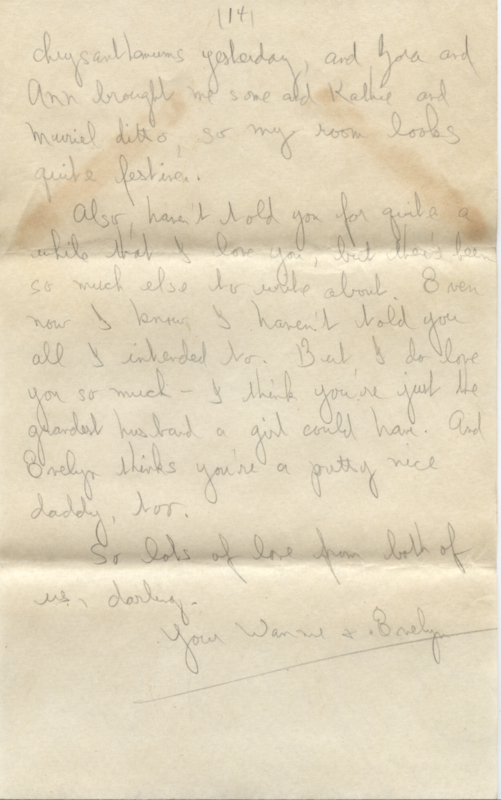 |14|
chrysanthanums yesterday, and and
Ann brought me some and Kathie and
Muriel ditto, so my room looks
quite festive.
Also, haven't told you for quite a
while that I love you, but there's been
so much else to write about. Even
now I know I haven't told you
all I intended to. But I do love
you so much - I think you're just the
grandest husband a girl could have. And
Evelyn thinks you're a pretty nice
daddy, too.
So lots of love from both of
us, darling.
Your & Evelyn